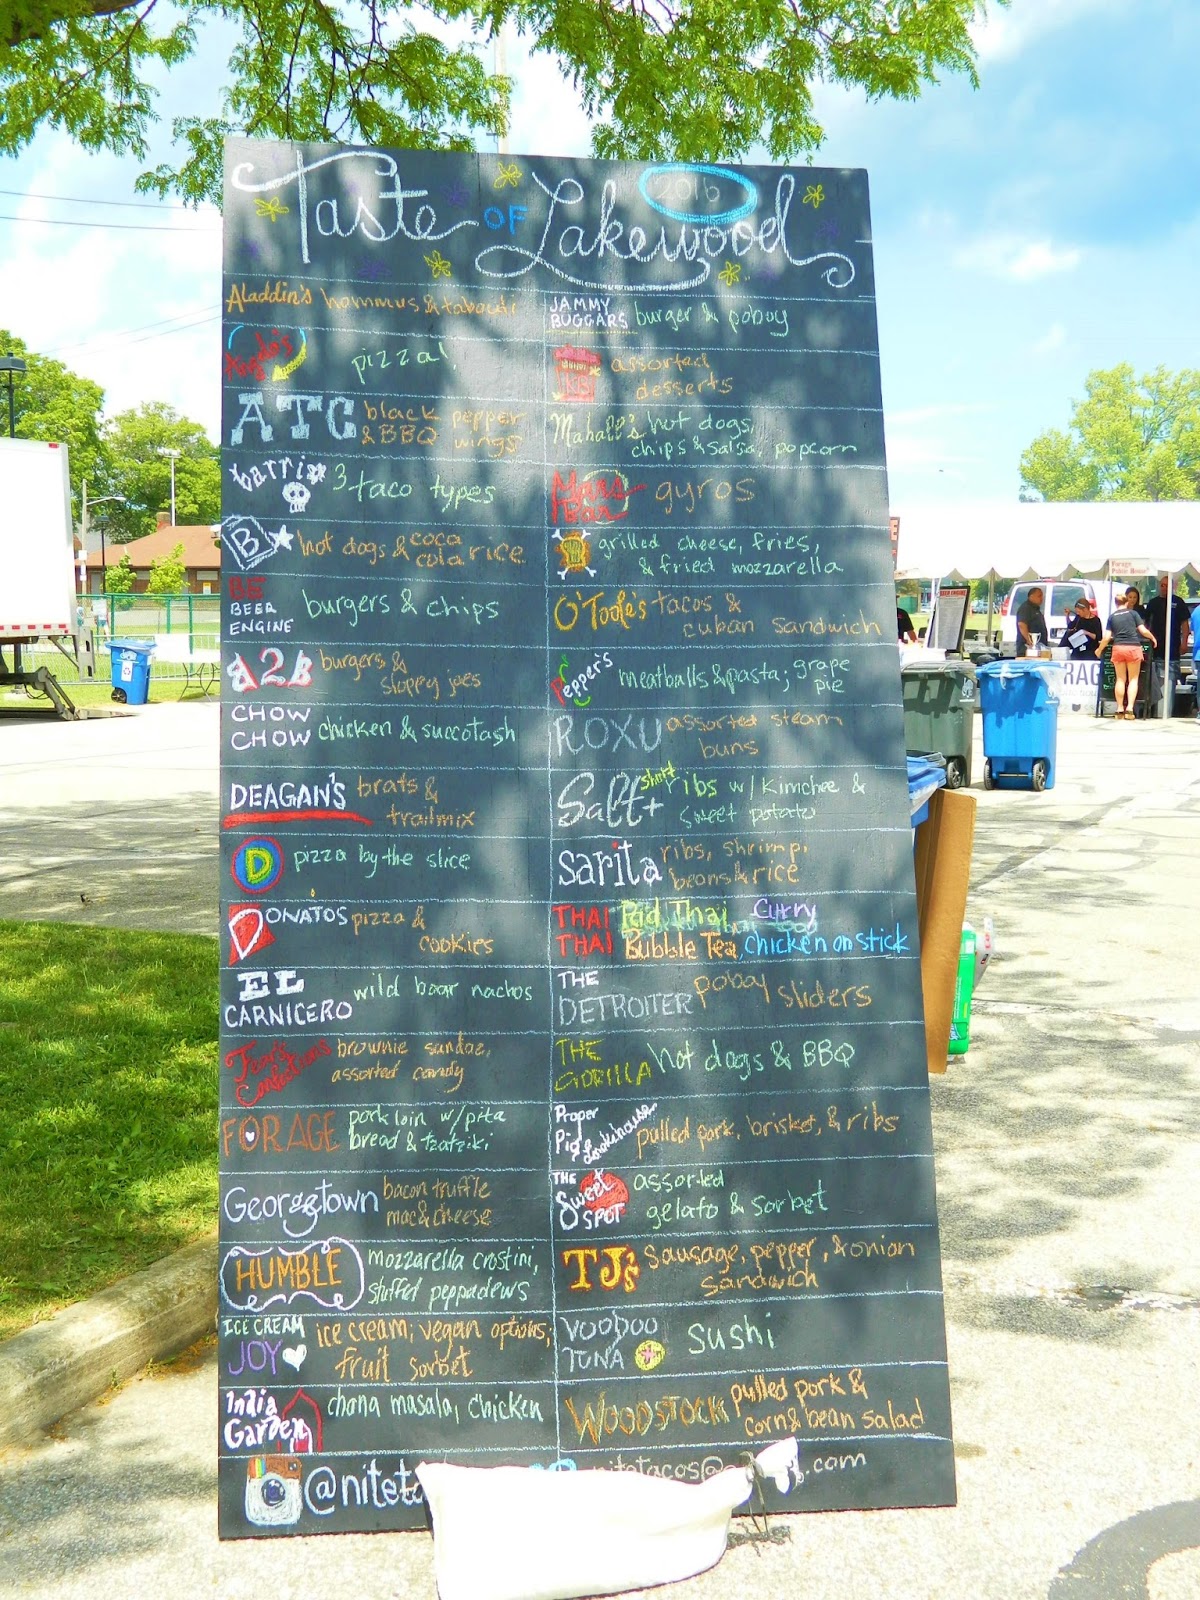 Taste OF Lakewood
2016
Aladdin's hommus & tabouli
pizza!
ATC black pepper
& BBQ wings
barrio 3 taco types
B hot dogs & coca
cola rice
BE
BEER
ENGINE burgers & chips
B2B burgers &
sloppy joes
CHOW
CHOW chicken & succotash
DEAGAN'S brats &
trailmix
D pizza by the slice
DONATOS pizza &
cookies
EL
CARNICERO wild boar nachos
Confections brownie sundae,
assorted candy
FORAGE pork loin w/pita
bread & tzatziki
Georgetown bacon truffle
mac & cheese
HUMBLE mozzarella crostini,
stuffed peppadews
ICE CREAM
JOY ice cream; vegan options,
fruit sorbet
India
Garden chana masala, chicken
JAMMY
BUGGARS burger & poboy
assorted
desserts
Mahall's hot dogs,
chips & salsa, popcorn
Mars
Bar gyros
grilled cheese, fries,
& fried mozzarella
O'Toole's tacos &
cuban sandwich
Pepper's meatballs & pasta; grape
pie
ROXU assorted steam
buns
Salt+ short ribs w/ Kimchee &
sweet potato
Sarita ribs, shrimp,
beans & rice
THAI
THAI Pad Thai Curry
Bubble Tea, chicken on stick
THE
DETROITER poboy sliders
THE
GORILLA hot dogs & BBQ
Proper
Pig Smokehouse pulled pork, brisket, & ribs
THE
Sweet
SPOT assorted
gelato & sorbet
TJ's sausage, pepper, & onion
sandwich
VOODOO
TUNA sushi
WOODSTOCK pulled pork &
corn & bean salad
@nitet
nitetacos@ .com
Forage
Public House